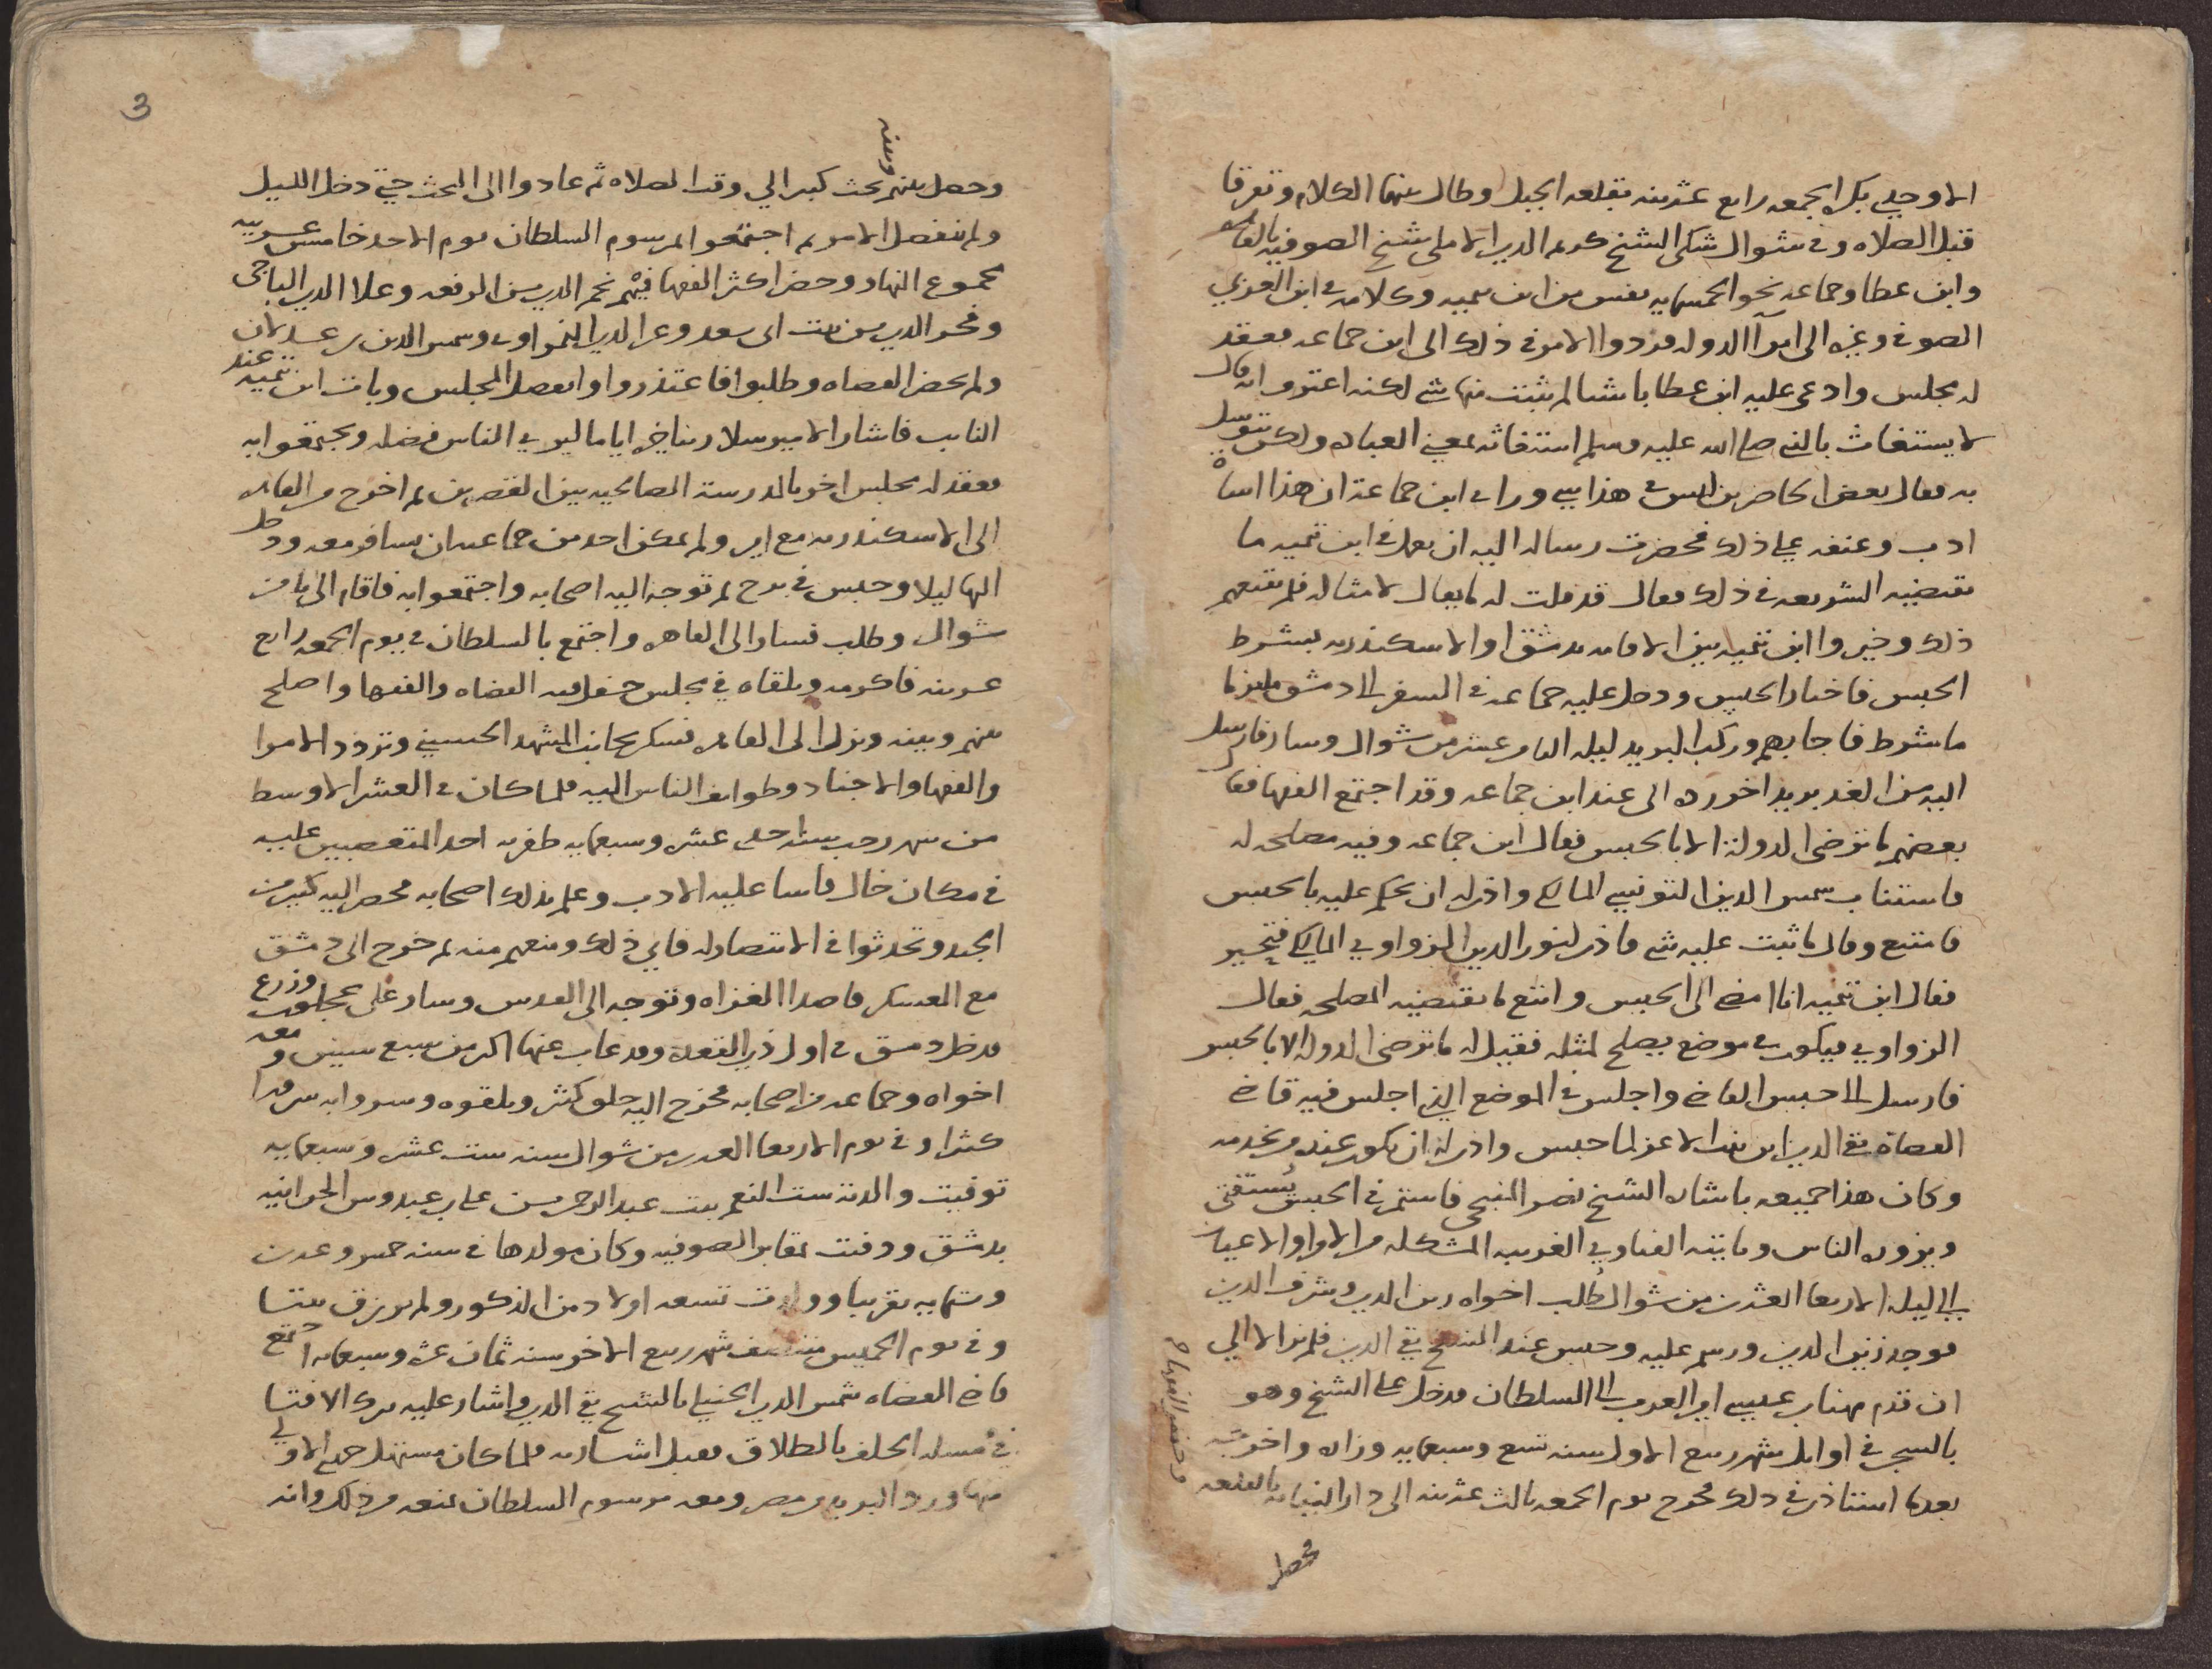 الاوحدي بكره الجمعه رابع عشرينه بقلعه الجبل وطال بينهما الكلام وتفرقا
قبل الصلاه وفي شوال شكى الشيخ كريم الدين الاملي شيخ الصوفيه بالقاهره
وابن عطا وجماعه نحو الخمسمايه نفس من ابن تيميه وكلامه في ابن العربي
الصوفي وغيره الى امرآ الدوله فردوا الامر في ذلك الى ابن جماعه فعقد
له مجلس وادعى عليه ابن عطا باشيا لم يثبت منها شي لكنه اعترف انه قال
لا يستغاث بالنبي صلى الله عليه وسلم استغاثه بمعنى العباده ولكن يتوسل
به فقال بعض الحاضرين ليس في هذا شي وراى ابن جماعة ان هذا اساة
ادب وعنفه على ذلك فحضرت رساله اليه ان يعمل في ابن تيميه ما
تقتضيه الشريعه في ذلك فقال قد قلت له ما يقال لامثاله فلم يقنعهم
ذلك وخيروا ابن تيميه بين الاقامه بدمشق او الاسكندريه بشرط
الحبس فاختار الحبس ودخل عليه جماعه في السفر الى دمشق ملتزما
ما شرط فاجابهم وركب البريد ليله الثامن عشر من شوال وسار فارسل
اليه من الغد بريد اخر ورده الى عند ابن جماعه وقد اجتمع الفقها فقال
بعضهم ما ترضى الدولة الا بالحبس فقال ابن جماعه وفيه مصلحه له
فاستناب شمس الدين التونسي المالكي واذن له ان يحكم عليه بالحبس
فامتنع وقال ما ثبت عليه شي فاذن لنور الدين الزواوي المالكي فتحير
فقال ابن تيميه انا امضي الى الحبس واتبع ما تقتضيه المصلحه فقال
الزواوي فيكون في موضع يصلح لمثله فقيل له ما ترضى الدوله الا بالحبس
فارسل الى حبس القاضي واجلس في الموضع الذي اجلس فيه قاضي
القضاة تقي الدين ابن بنت الاعز لما حبس واذن له ان يكون عنده من يخدمه
وكان هذا جميعه باشاره الشيخ نصر المنبجي فاستمر في الحبس يُستفتى
ويزوره الناس وتاتيه الفتاوي الغريبه المشكله من الامرا والاعيان
الى ليله الاربعا العشرين من شوال طُلب اخواه زين الدين وشرف الدين
فوجد زين الدين ورسم عليه وحبس عند الشيخ تقي الدين فلم يزالا الى
ان قدم مهنا بن عيسى امير العرب الى السلطان فدخل على الشيخ وهو
بالسجن في اوايل شهر ربيع الاول سنه تسع وسبعمايه وزاره واخرجه
بعدما استاذن في ذلك فخرج يوم الجمعه ثالث عشرينه الى دار النيابه بالقلعه
وحضر الفقها
فحصل
3
وحصل بينهم وبينه بحث كبير الى وقت الصلاه ثم عادوا الى البحث حتى دخل الليل
ولم ينفصل الامر ثم اجتمعوا بمرسوم السلطان يوم الاحد خامس عشرينه
مجموع النهار وحضر اكثر الفقها فيهم نجم الدين بن الرفعه وعلا الدين الباجي
وفخر الدين بن بنت ابي سعد وعز الدين النمراوي وشمس الدين بن عدلان
ولم يحضر القضاه وطلبوا فاعتذروا وانفصل المجلس وبات ابن تيميه عند
النايب فاشار الامير سلار بتاخيره اياما ليرى الناس فضله ويجتمعوا به
فعقد له مجلس اخر بالمدرسة الصالحيه بين القصرين ثم اخرج من القاهره
الى الاسكندريه مع امير ولم يمكن احد من جماعته ان يسافر معه ودخل
اليها ليلا وحبس في برج ثم توجه اليه اصحابه واجتمعوا به فاقام الى ثامن
شوال وطلب فسار الى القاهره واجتمع بالسلطان في يوم الجمعه رابع
عشرينه فاكرمه وتلقاه في مجلس حفل فيه القضاه والفقها واصلح
بينهم وبينه ونزل الى القاهره فسكن بجانب المشهد الحسيني وتردد الامرا
والفقها والاجناد وطوايف الناس اليه فلما كان في العشر الاوسط
من شهر رجب سنه احدى عشره وسبعمايه ظفر به احد المتعصبين عليه
في مكان خال فاسا عليه الادب وعلم بذلك اصحابه فحضر اليه كثير من
الجند وتحدثوا في الانتصار له فابى ذلك ومنعهم منه ثم خرج الى دمشق
مع العسكر قاصدا الغزاه وتوجه الى القدس وسار على عجلون وزرع
فدخل دمشق في اول ذي القعده وقد غاب عنها اكثر من سبع سنين ومعه
اخواه وجماعه من اصحابه فخرج اليه خلق كثير وتلقوه وسروا به سرورا
كثيرا وفي يوم الاربعا العشرين من شوال سنه ست عشر وسبعمايه
توفيت والدته ست النعم بنت عبد الرحمن بن علي بن عبدوس الحرانيه
بدمشق ودفنت بمقابر الصوفيه وكان مولدها في سنه خمس وعشرين
وستمايه تقريبا وولدت تسعه اولاد من الذكور ولم ترزق بنتا
وفي يوم الخميس منتصف شهر ربيع الاخر سنه ثمان عشره وسبعمايه اجتمع
قاضي القضاه شمس الدين الحنبلي بالشيخ تقي الدين واشار عليه بترك الافتا
في مسله الحلف بالطلاق فقبل اشارته فلما كان مستهل جمادى الاولى
منها ورد البريد من مصر ومعه مرسوم السلطان بمنعه من ذلك وانه